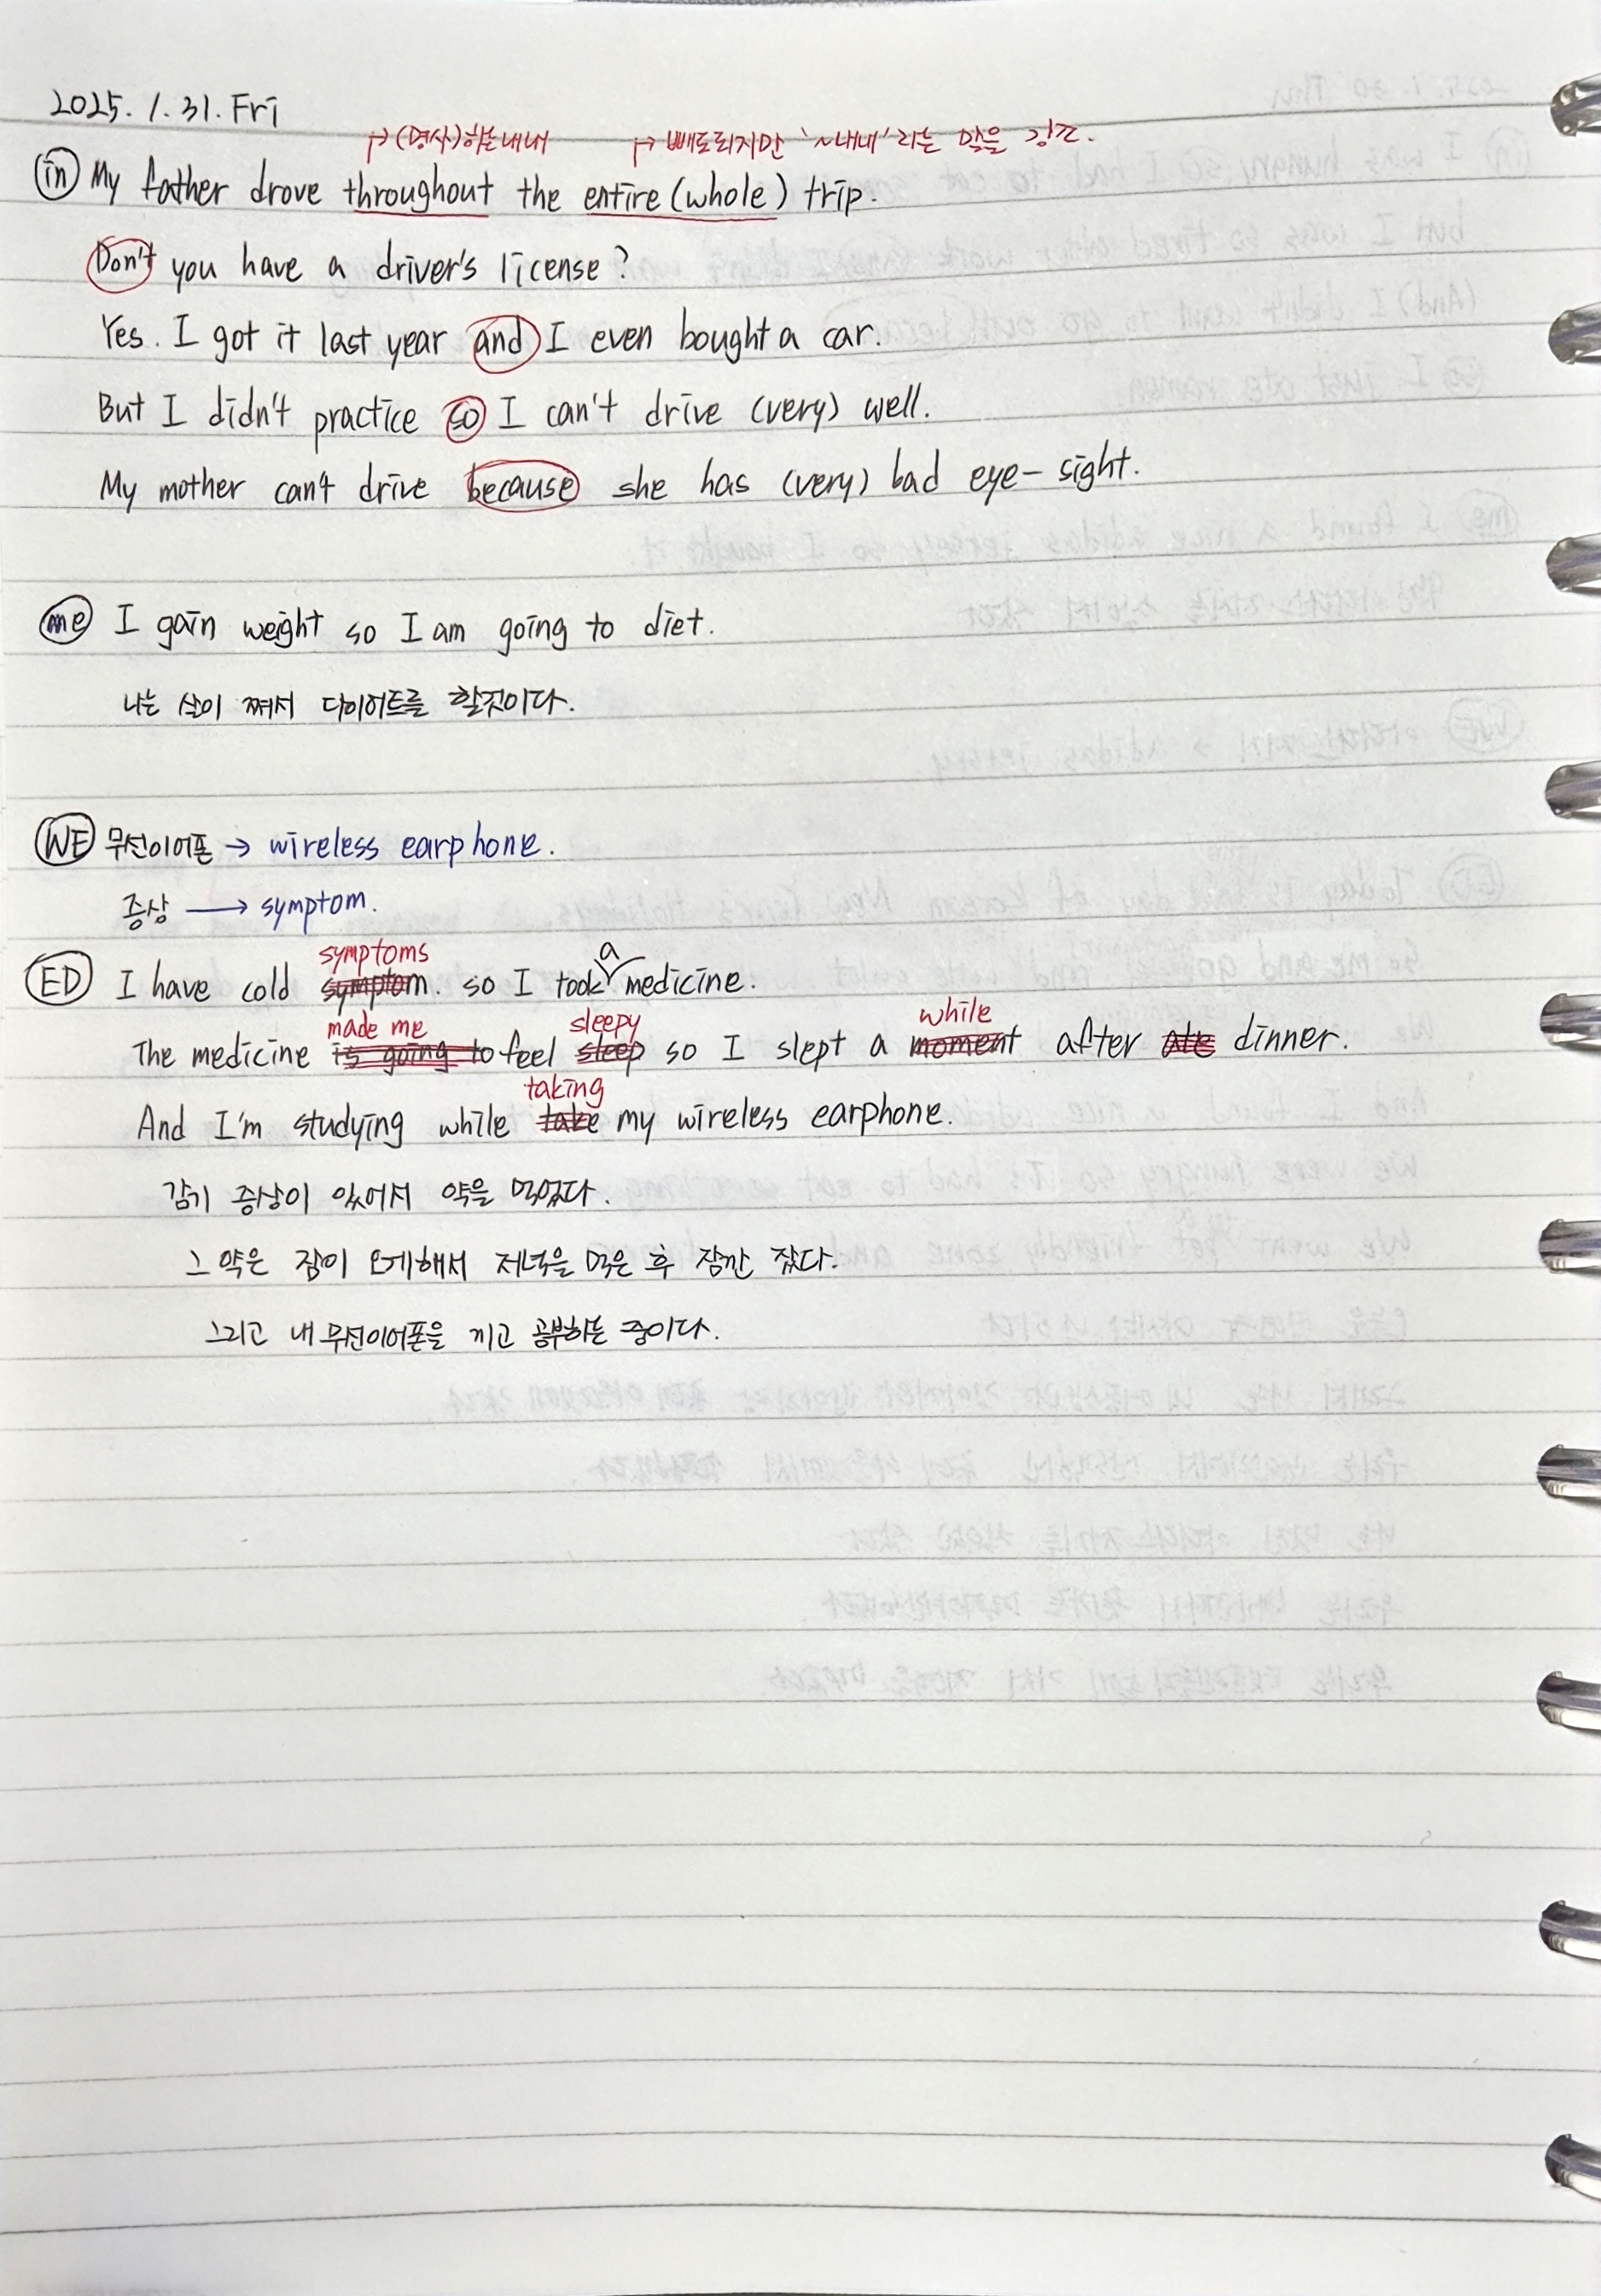 2025. 1. 31. Fri
↱ (명사)하는내내 ↱ 빼도되지만 '~내내'라는 말을 강조.
(in) My father drove throughout the entire (whole) trip.
Don't you have a driver's license?
Yes. I got it last year and I even bought a car.
But I didn't practice so I can't drive (very) well.
My mother can't drive because she has (very) bad eye-sight.
(me) I gain weight so I am going to diet.
나는 살이 쪄서 다이어트를 할것이다.
(WE) 무선이어폰 → wireless earphone.
증상 → symptom.
symptoms a
(ED) I have cold symptom. so I took medicine.
made me sleepy while
The medicine is going to feel sleep so I slept a moment after ate dinner.
taking
And I'm studying while take my wireless earphone.
감기 증상이 있어서 약을 먹었다.
그 약은 잠이 오게해서 저녁을 먹은 후 잠깐 잤다.
그리고 내 무선이어폰을 끼고 공부하는 중이다.